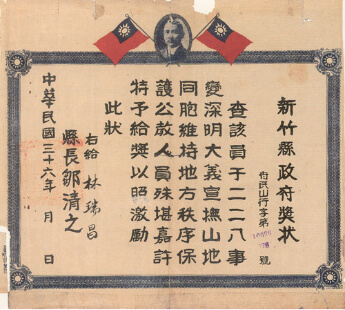 新竹縣政府獎狀
府民山行字第 號
查該員于二二八事
變深明大義宣撫山地
同胞維持地方秩序保
護公教人員殊堪嘉許
特予給獎以昭激勵
此狀
右給 林瑞昌
縣長鄒清之
中華民國三十六年 月 日